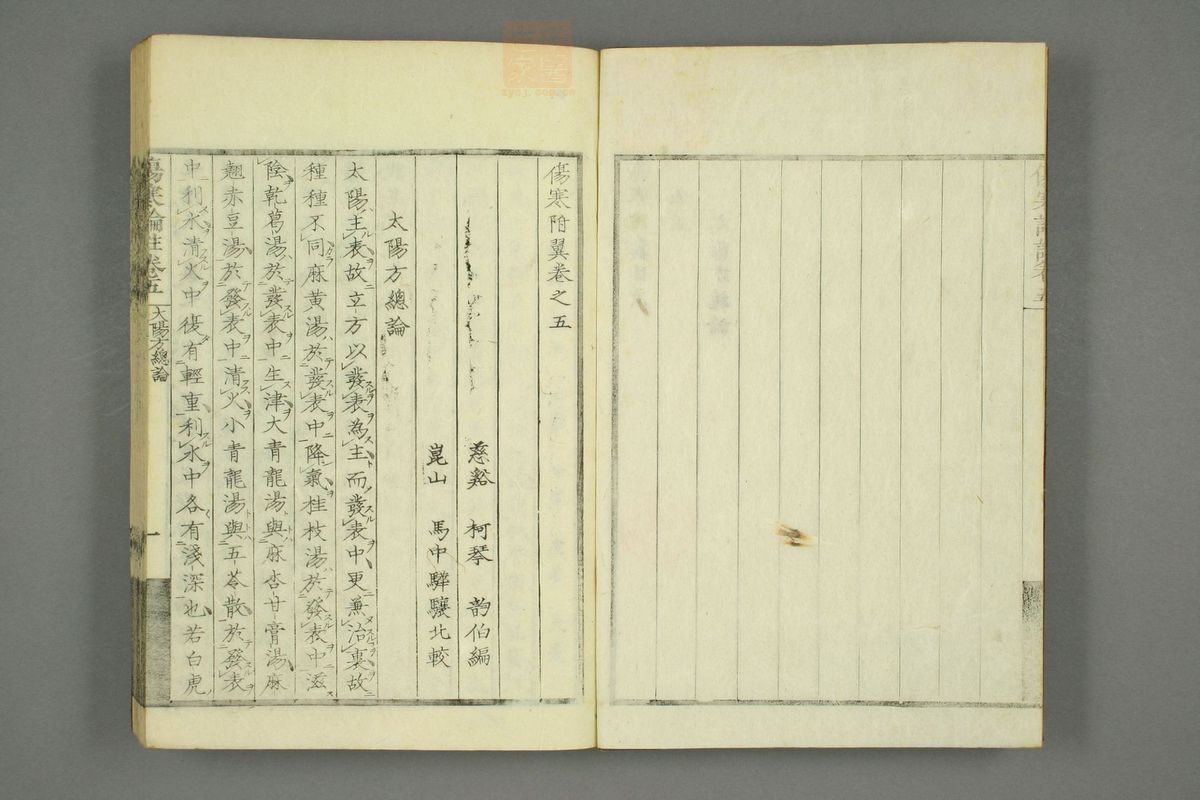 傷寒附翼卷之五
慈谿 柯琴 韵伯編
崑山 馬中驊驤北較
太陽方總論
太陽主表故立方以發表為主而發表中更兼治裏故
種種不同麻黃湯於發表中降氣桂枝湯於發表中滋
陰乾葛湯於發表中生津大青龍湯與麻杏甘膏湯麻
翹赤豆湯於發表中清火小青龍湯與五苓散於發表
中利水清火中復有輕重利水中各有淺深也若白虎
傷寒論註 卷五 太陽方總論 一